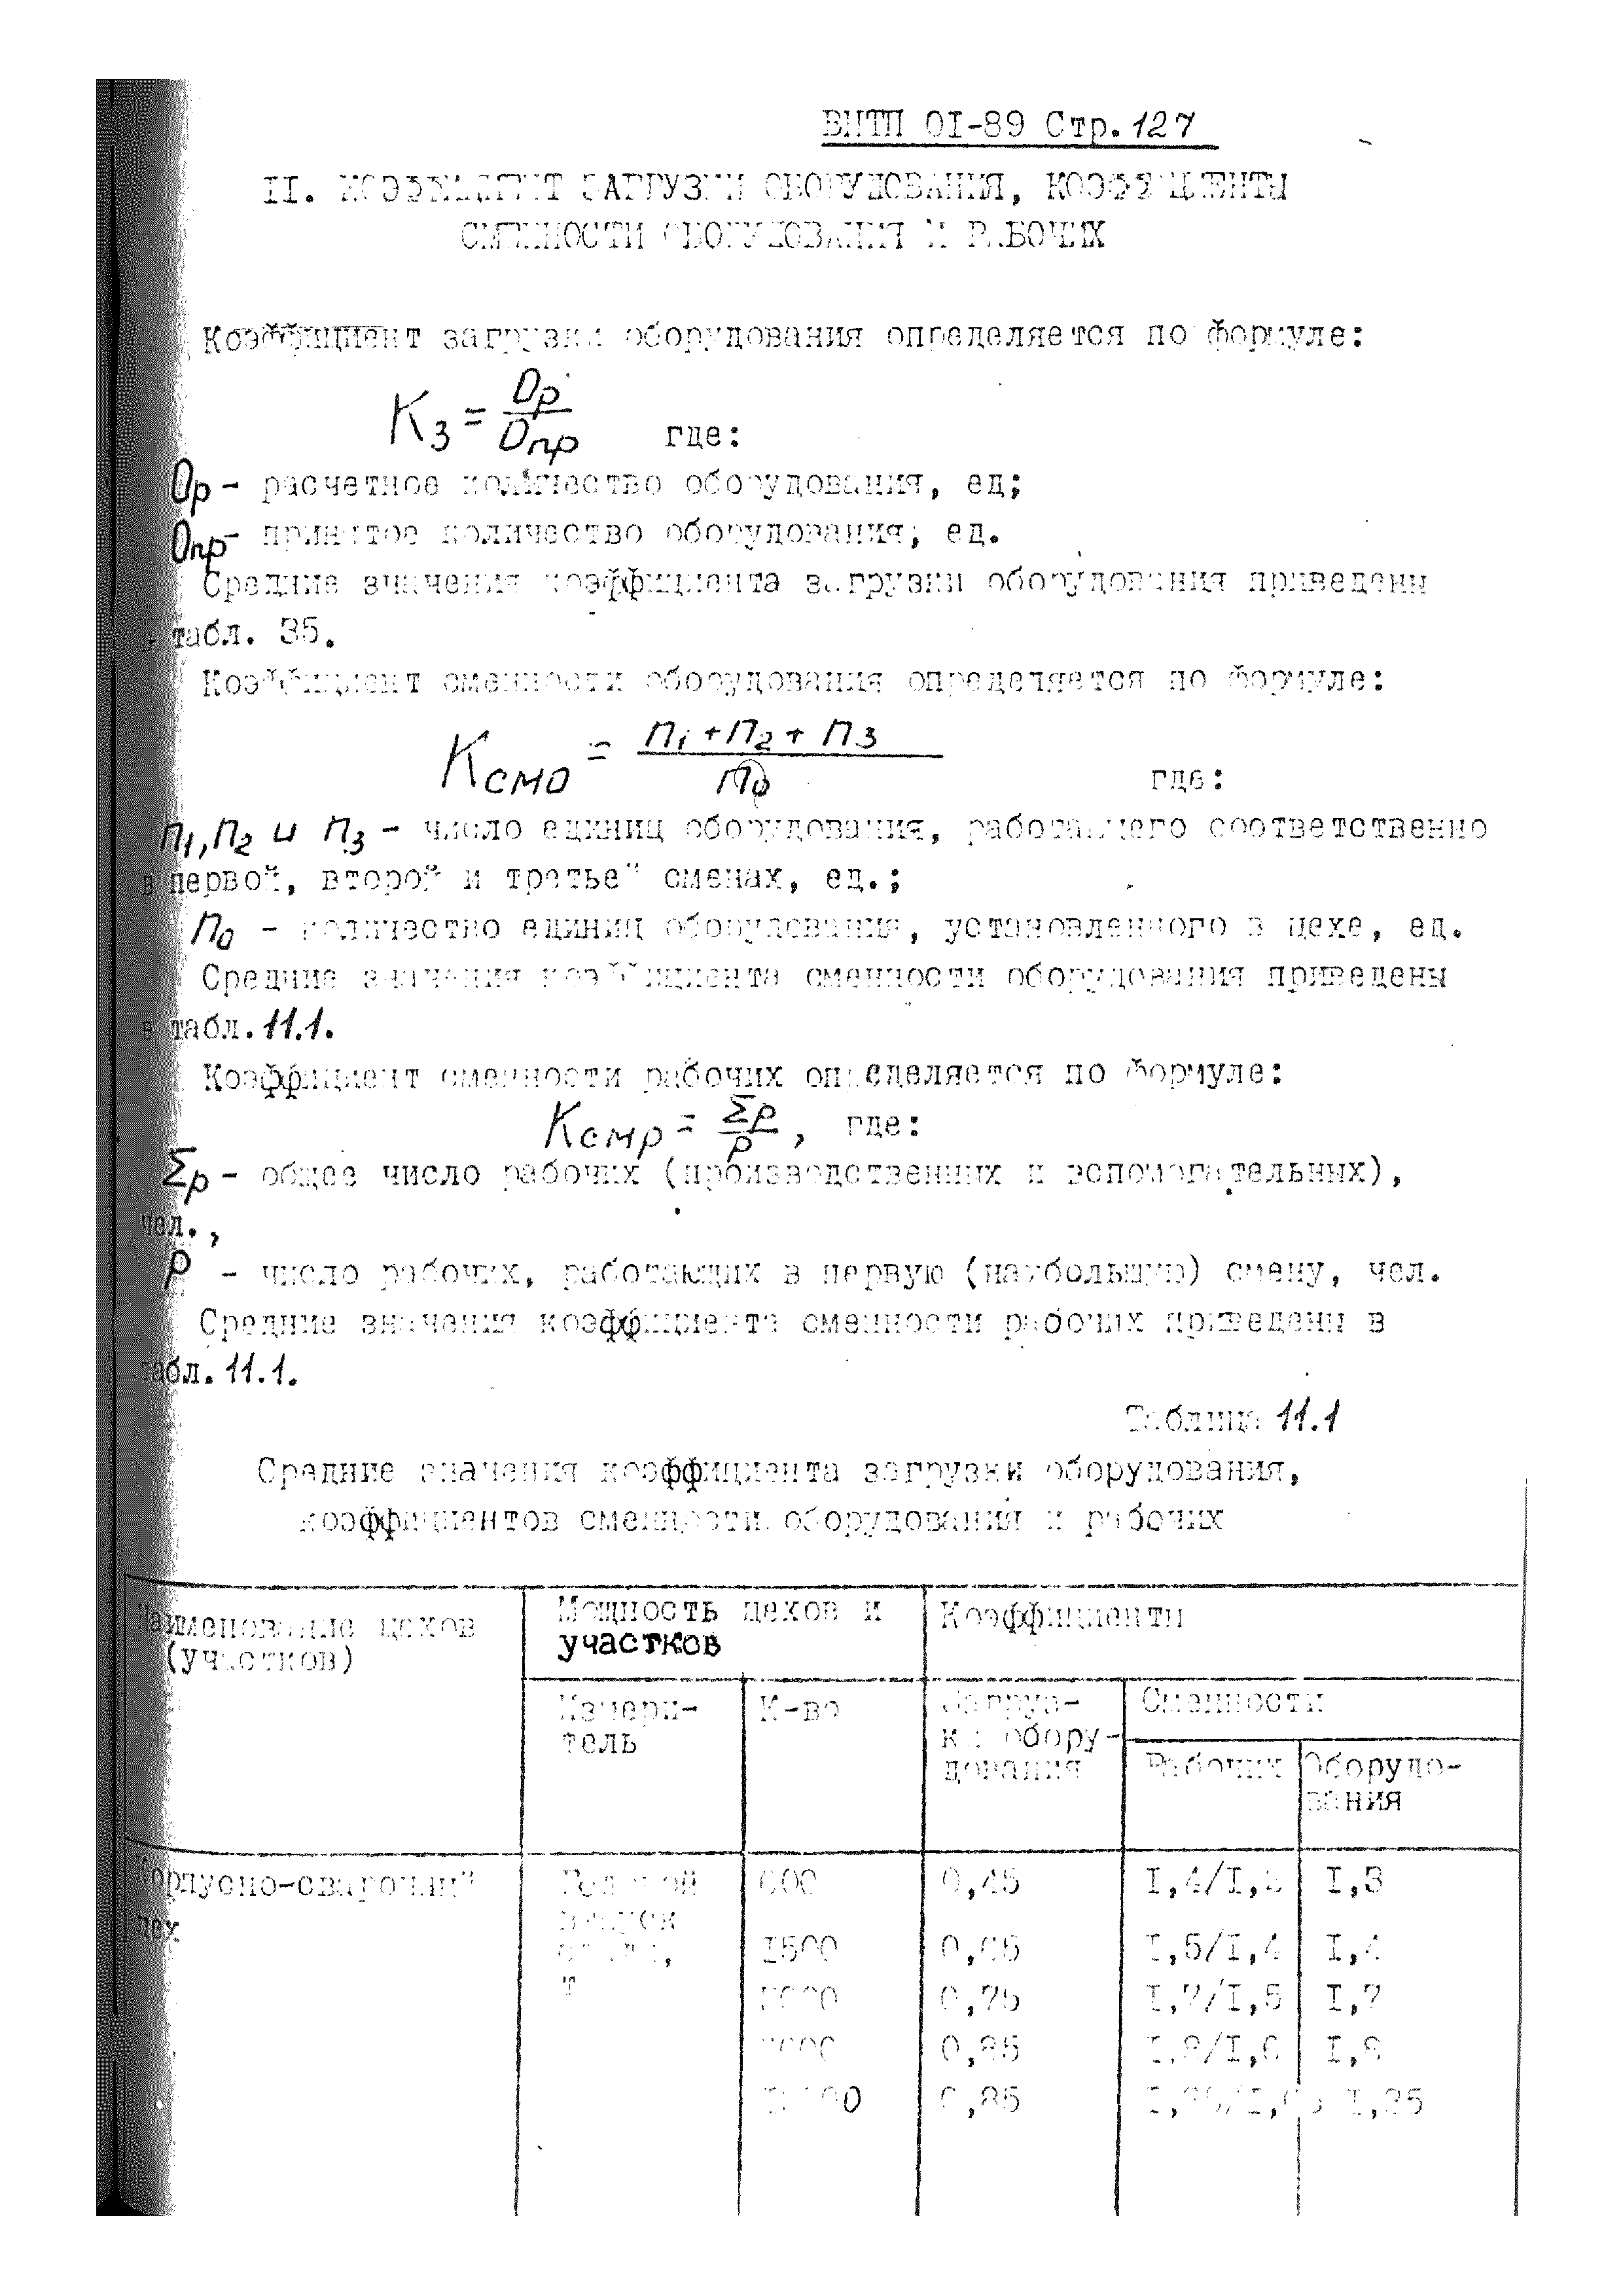 ВНТП 01-89 Стр.127
11. КОЭФФИЦИЕНТ ЗАГРУЗКИ ОБОРУДОВАНИЯ, КОЭФФИЦИЕНТЫ
СМЕННОСТИ ОБОРУДОВАНИЯ И РАБОЧИХ
Коэффициент загрузки оборудования определяется по формуле:
Kз = Ор/Опр где:
Ор - расчетное количество оборудования, ед;
Опр - принятое количество оборудования, ед.
Средние значения коэффициента загрузки оборудования приведены
в табл. 35.
Коэффициент сменности оборудования определяется по формуле:
Kсмо = n1+n2+n3 / n0 где:
n1, n2 и n3 - число единиц оборудования, работающего соответственно
в первой, второй и третьей сменах, ед.;
n0 - количество единиц оборудования, установленного в цехе, ед.
Средние значения коэффициента сменности оборудования приведены
в табл. 11.1.
Коэффициент сменности рабочих определяется по формуле:
Kсмр = Σр/р, где:
Σр - общее число рабочих (производственных и вспомогательных),
чел.,
р - число рабочих, работающих в первую (наибольшую) смену, чел.
Средние значения коэффициента сменности рабочих приведены в
табл. 11.1.
Таблица 11.1
Средние значения коэффициента загрузки оборудования,
коэффициентов сменности оборудования и рабочих
Наименование цехов Мощность цехов и Коэффициенты
(участков) участков
Измери- К-во Загруз- Сменности
тель ки обору-
дования Рабочих Оборудо-
вания
Корпусно-сварочный Годовой 600 0,45 1,4/ 1,3
цех выпуск
1500 0,65 1,5/1,4 1,4
т 0,75 1,7/1,5 1,7
0,85 1,8/1,6 1,8
0,85